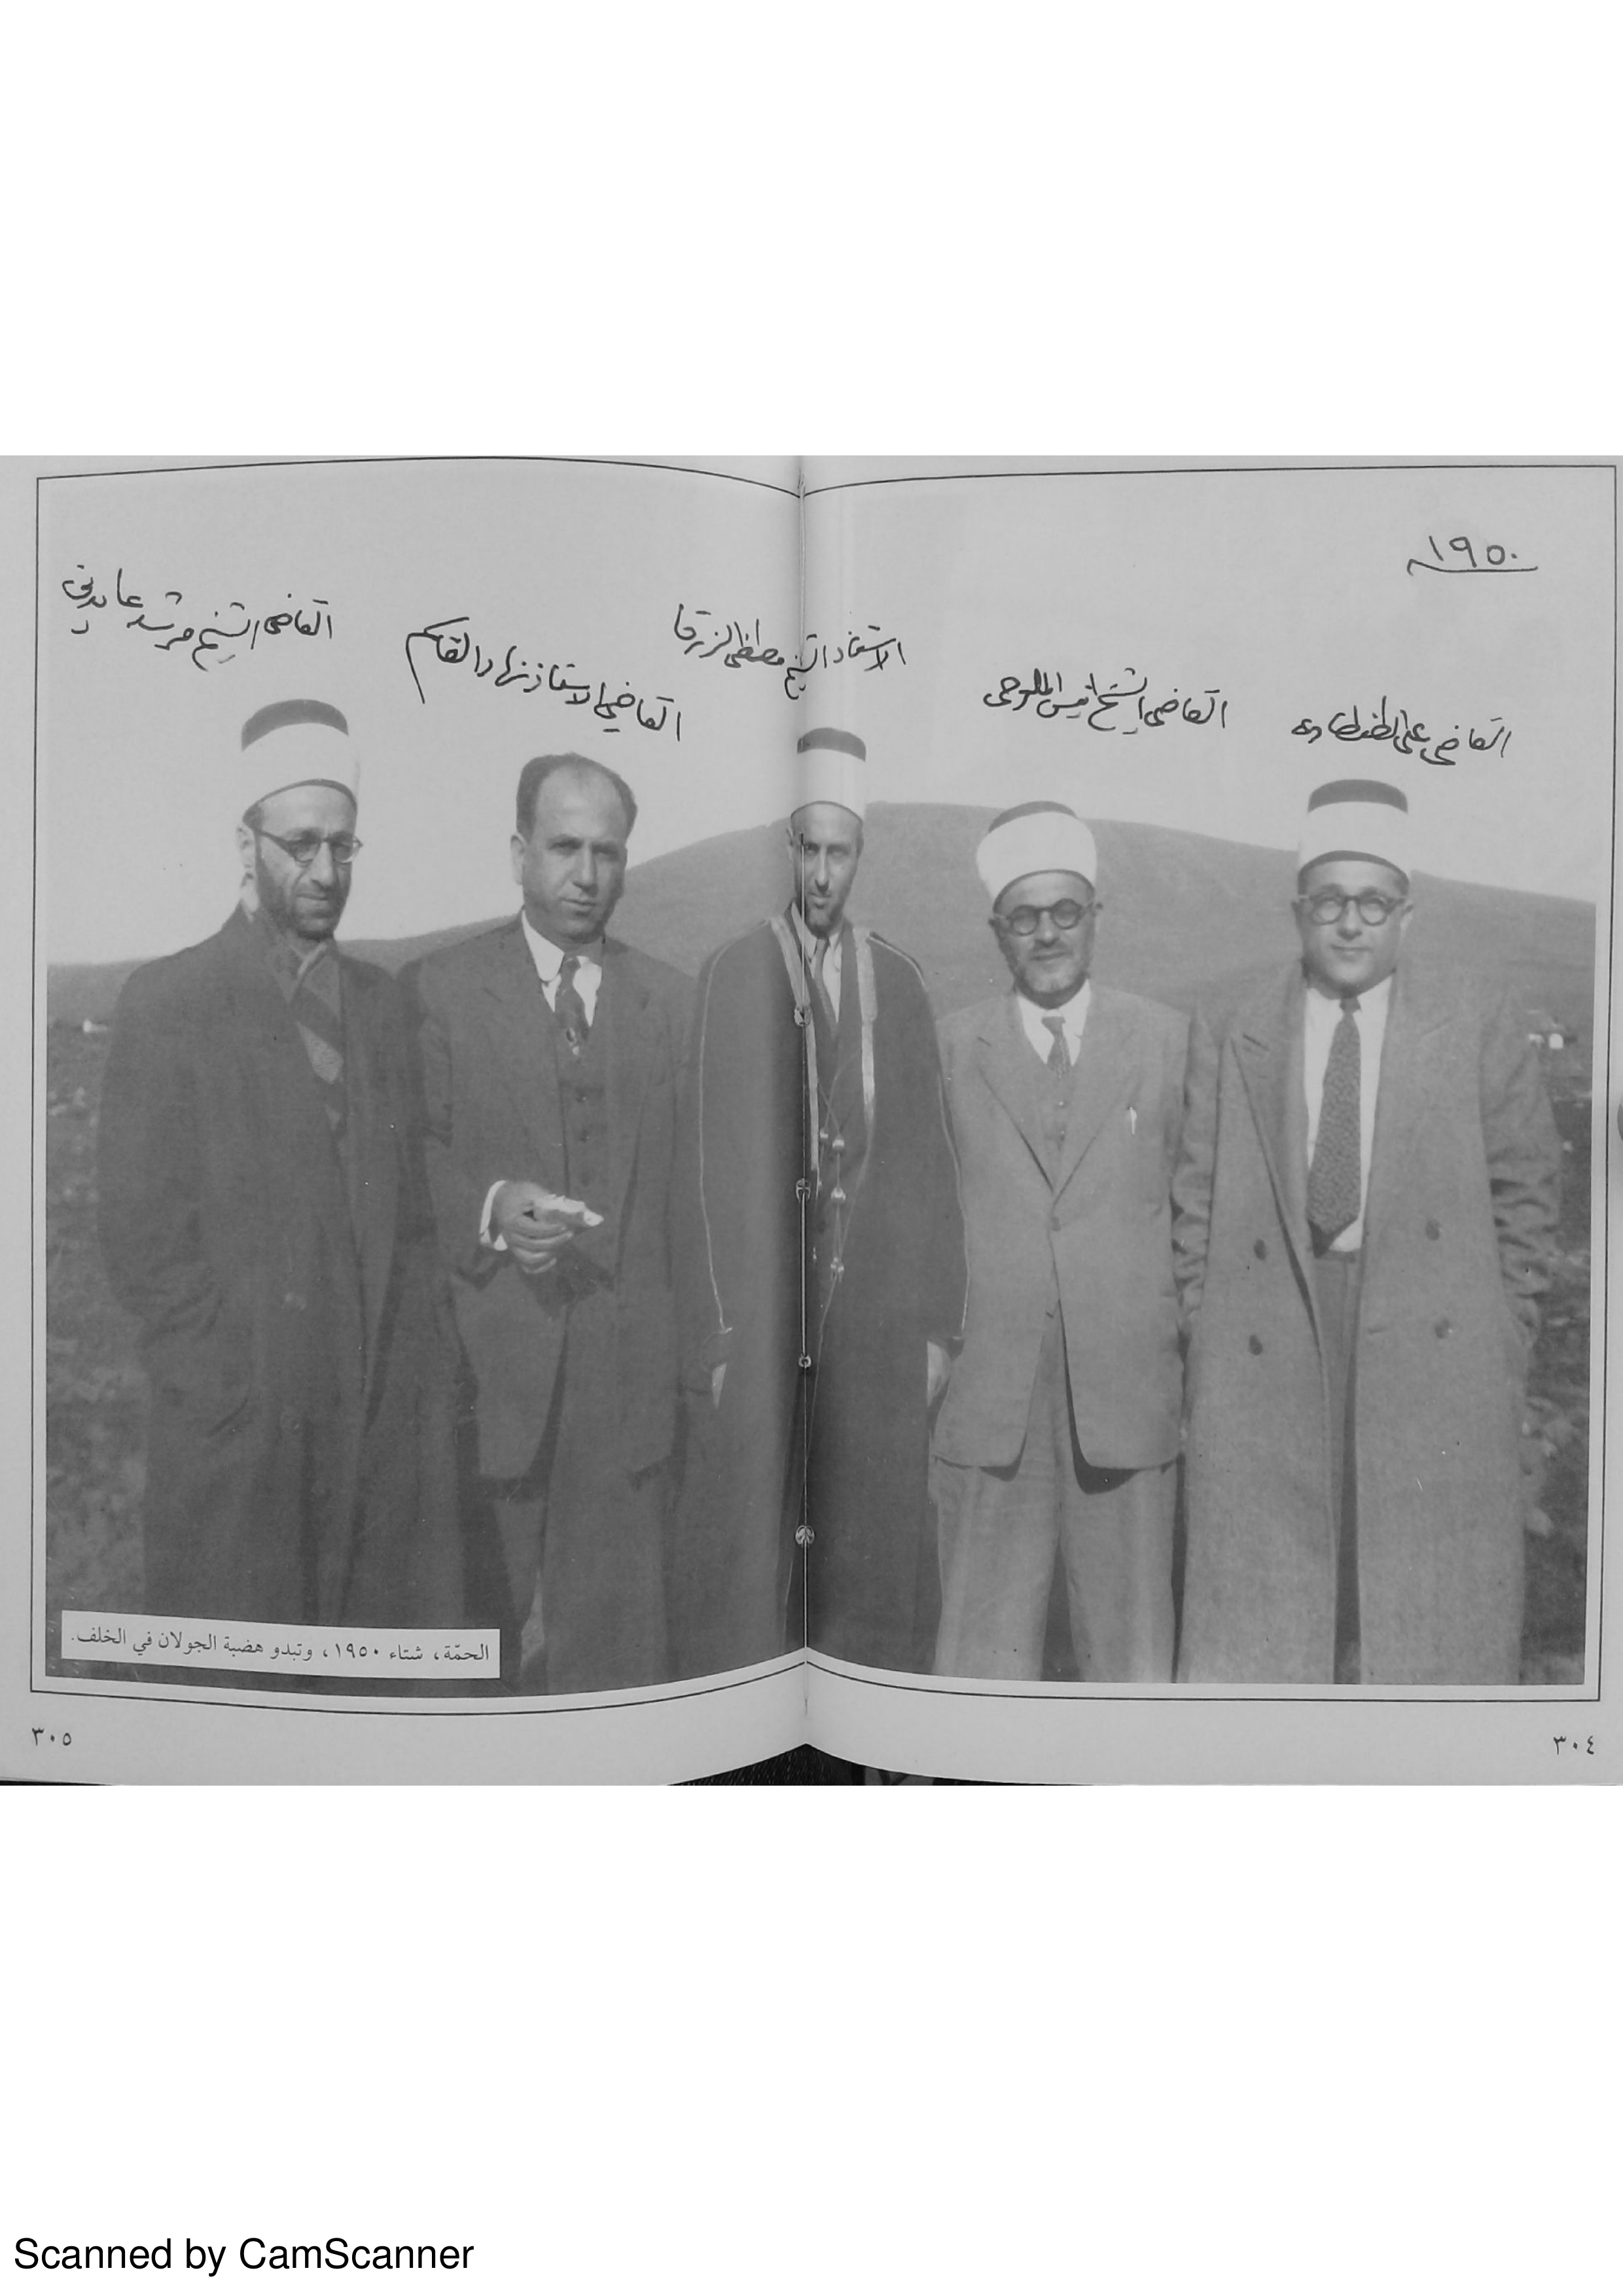 ١٩٥٠
القاضي علي الطنطاوي
القاضي الشيخ انيس الملوحي
الاستاذ الشيخ مصطفى الزرقا
القاضي الاستاذ نهاد القاسم
القاضي الشيخ مرشد عابدين
الحمّة، شتاء ١٩٥٠، وتبدو هضبة الجولان في الخلف.
٣٠٤
٣٠٥
Scanned by CamScanner